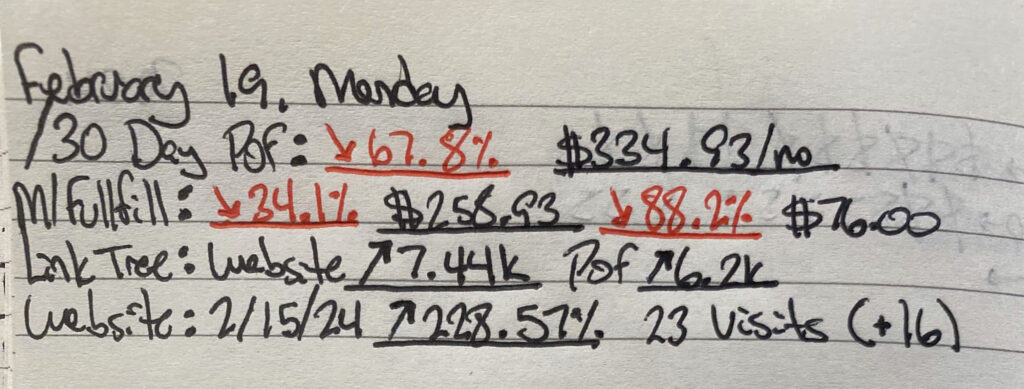 February 19, Monday
/30 Day Pof: ↘67.8% $334.93/mo
M/Fullfill: ↘34.1% $258.93 ↘88.2% $76.00
Link Tree: Website ↗7.44k Pof ↗6.2k
Website: 2/15/24 ↗228.57% 23 Visits (+16)